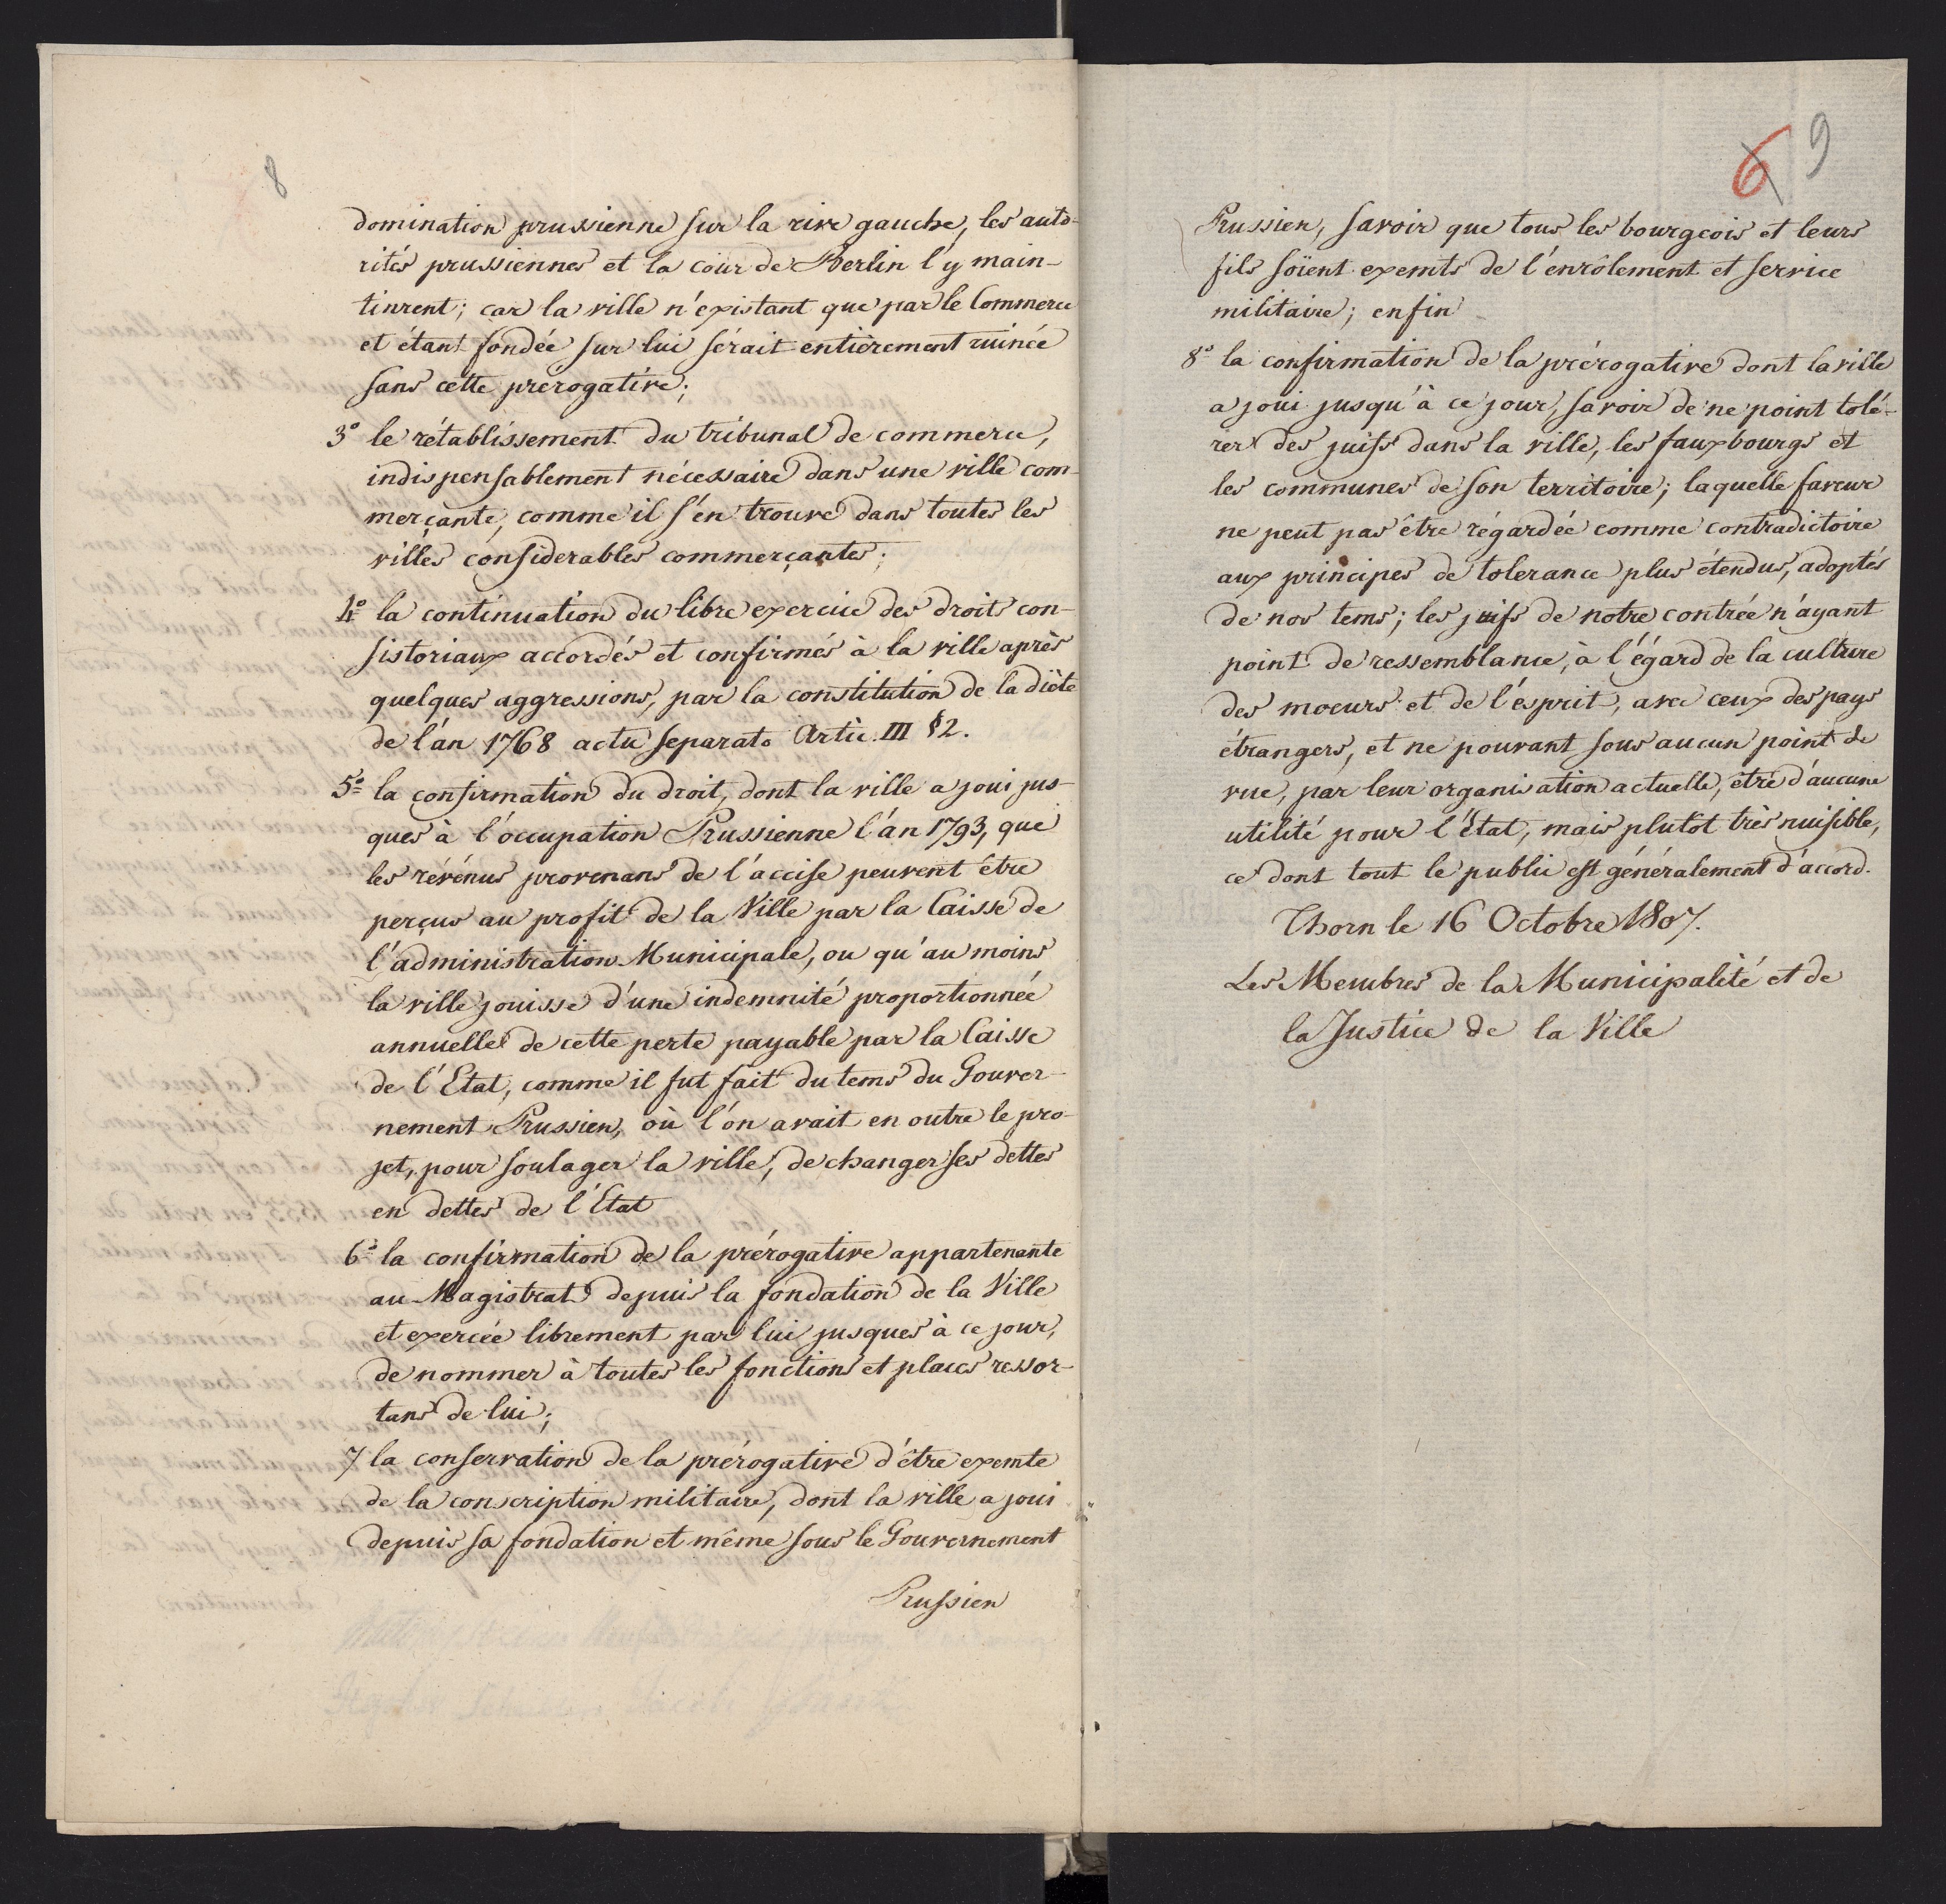 8
domination prussienne sur la rive gauche, les auto-
rités prussiennes et la cour de Berlin l'y main-
tinrent; car la ville n'existant que par le Commerce
et étant fondée sur lui sérait entièrement ruinée
sans cette prerogative;
3° le rétablissement du tribunal de commerce,
indispensablement nécessaire dans une ville com-
merçante, comme il s'en trouve dans toutes les
villes considerables commerçantes;
4° la continuation du libre exercice des droits con-
sistoriaux accordés et confirmés à la ville après
quelques aggressions, par la constitution de la diète
de l'an 1768 actu separato Artic. III § 2.
5° la confirmation du droit, dont la ville a joui jus-
ques à l'occupation Prussienne l'an 1793, que
les révénus provenans de l'accise peuvent être
perçus au profit de la Ville par la Caisse de
l'administration Municipale, ou qu'au moins
la ville jouisse d'une indemnité proportionnée
annuelle de cette perte payable par la Caisse
de l'Etat, comme il fut fait du tems du Gouver-
nement Prussien, où l'on avait en outre le pro-
jet, pour soulager la ville, de changer ses dettes
en dettes de l'Etat
6° la confirmation de la prérogative appartenante
au Magistrat depuis la fondation de la Ville
et exercée librement par lui jusques à ce jour,
de nommer à toutes les fonctions et places ressor-
tans de lui;
7 la conservation de la prérogative d'être exemte
de la conscription militaire, dont la ville a joui
depuis sa fondation et même sous le Gouvernement
Prussien
6 9
Prussien, savoir que tous les bourgeois et leurs
fils soïent exemts de l'enrôlement et service
militaire; enfin
8° la confirmation de la prérogative dont la ville
a joui jusqu'à ce jour, savoir de ne point tolé-
rer des juifs dans la ville, les fauxbourgs et
les communes de son territoire; laquelle faveur
ne peut pas être régardée comme contradictoire
aux principes de tolerance plus étendus, adoptés
de nos tems; les juifs de notre contrée n'ayant
point de ressemblance, à l'égard de la culture
des moeurs et de l'esprit, avec ceux des pays
étrangers, et ne pouvant sous aucun point de
vue, par leur organisation actuelle, être d'aucune
utilité pour l'État, mais plutôt très nuisible,
ce dont tout le public est généralement d'accord.
Thorn le 16 Octobre 1807.
Les Membres de la Municipalité et de
la Justice de la Ville